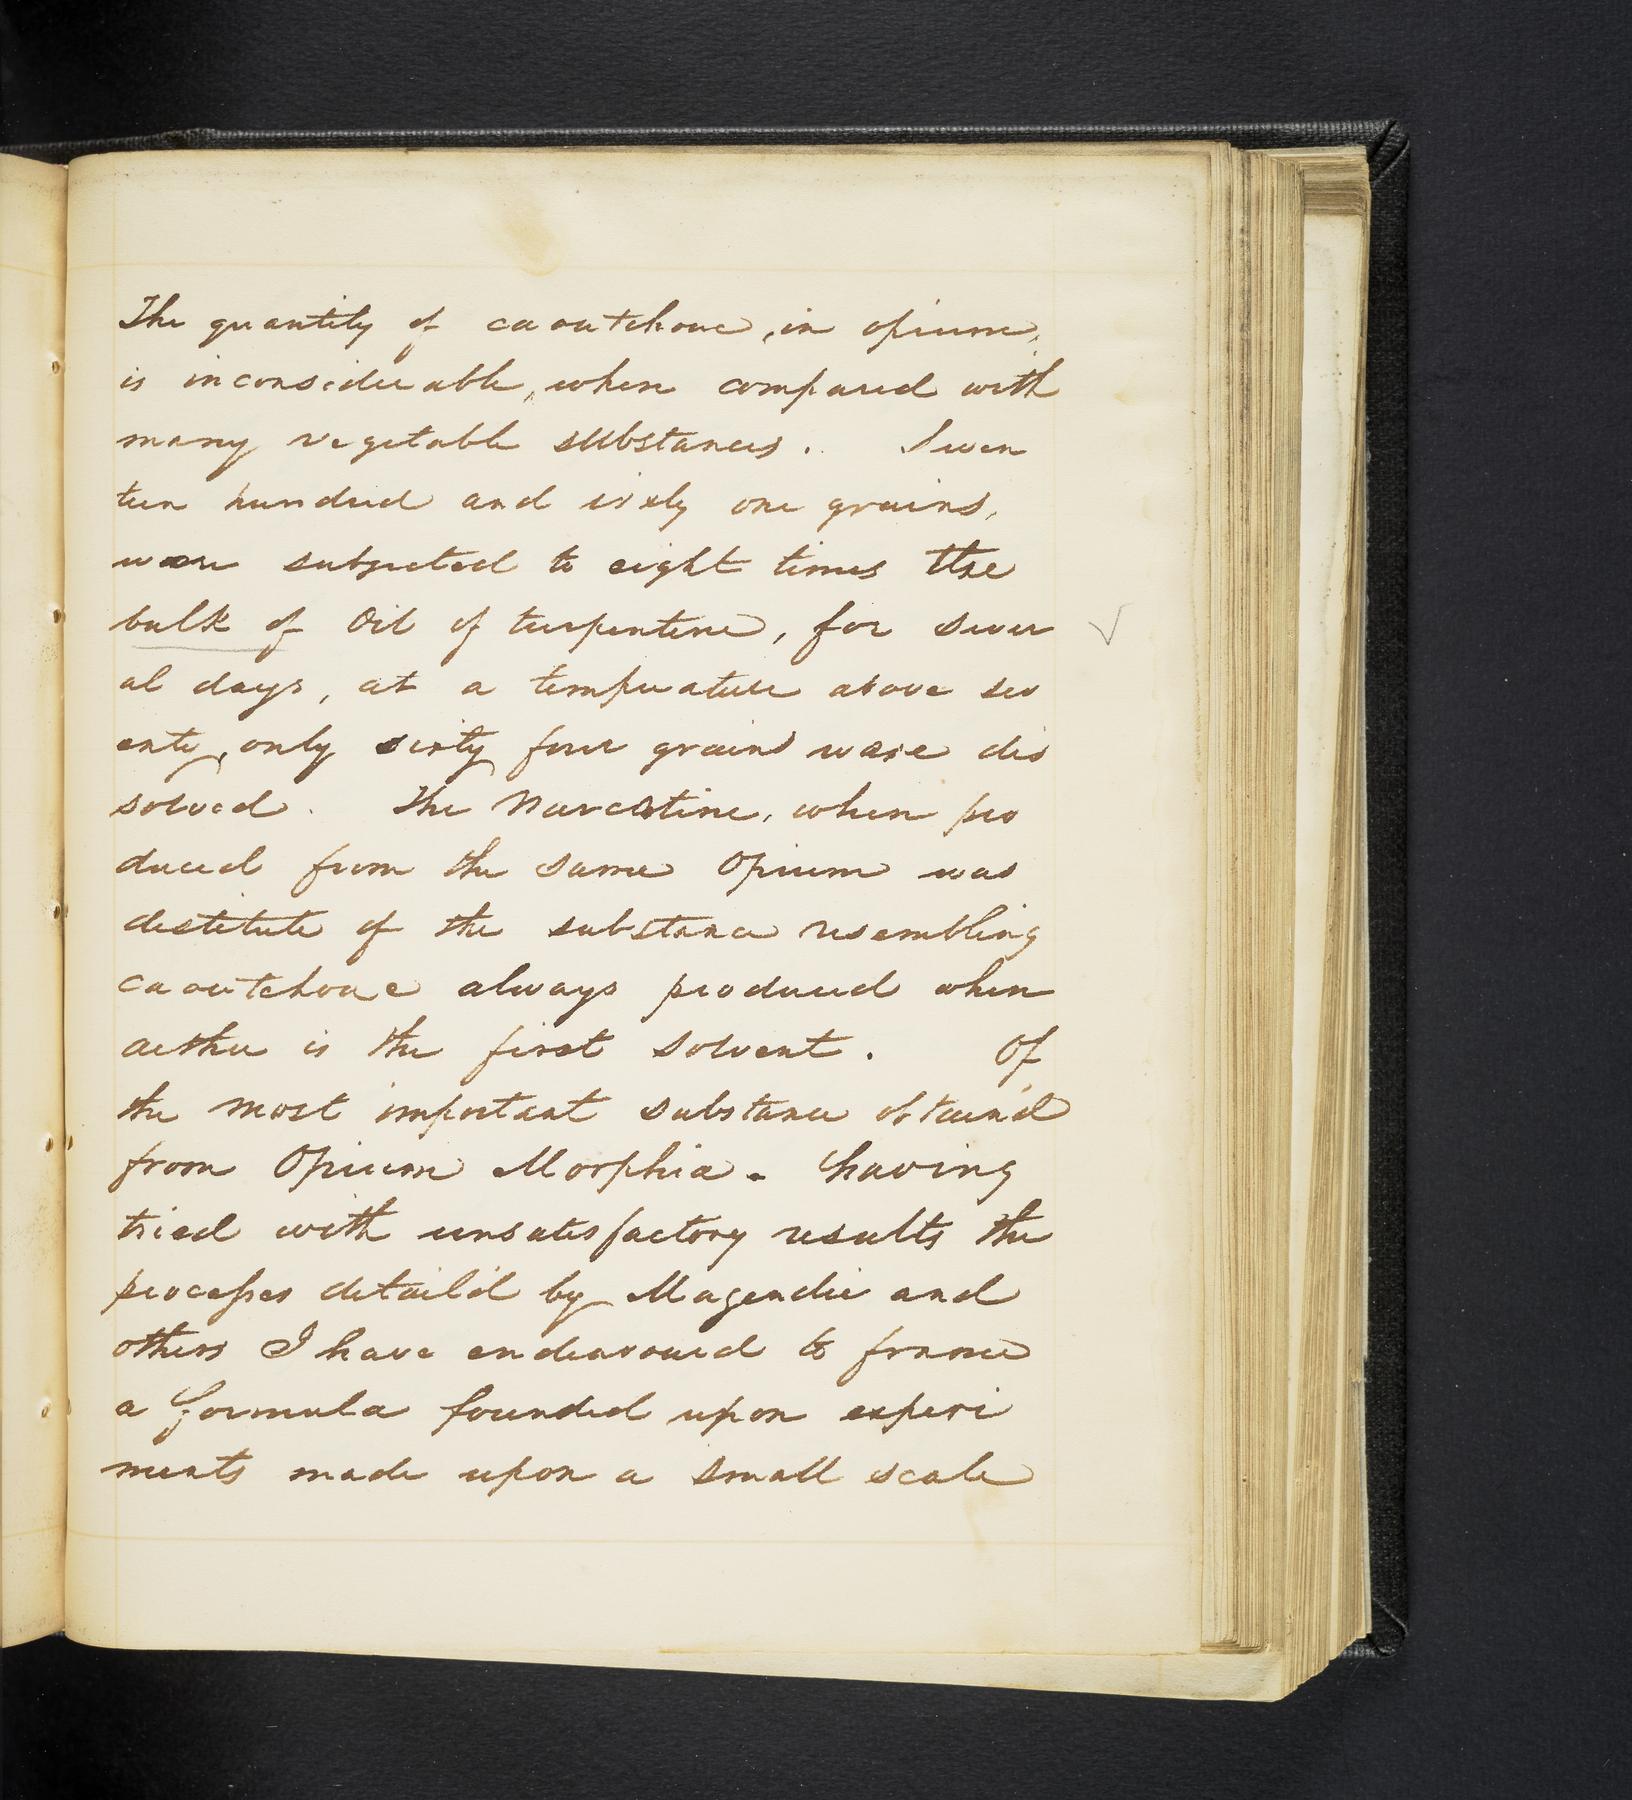 The quantity of caoutchouc, in opium,
is inconsiderable, when compared with
many vegetable substances. Seven
teen hundred and sixty one grains,
ware subjected to eight times the
bulk of Oil of turpentine, for sever
al days, at a temperature above sev
enty, only sixty four grains ware dis
solved. The Narcotine, when pro
duced from the same Opium was
destitute of the substance resembling
caoutchouc always produced when
aether is the first solvent. Of
the most important substance obtain'd
from Opium Morphia. having
tried with unsatisfactory results the
processes detail'd by Magendie and
others I have endeavoured to frame
a formula founded upon experi
ments made upon a small scale